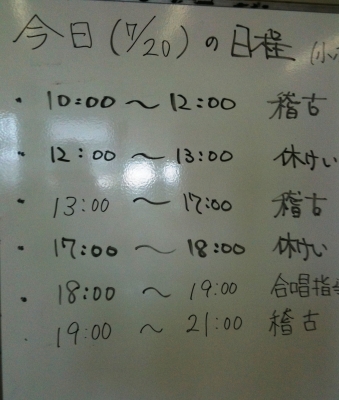 今日(7/20)の日程 (小
・10:00～12:00 稽古
・12:00～13:00 休けい
・13:00～17:00 稽古
・17:00～18:00 休けい
・18:00～19:00 合唱指
・19:00～21:00 稽古